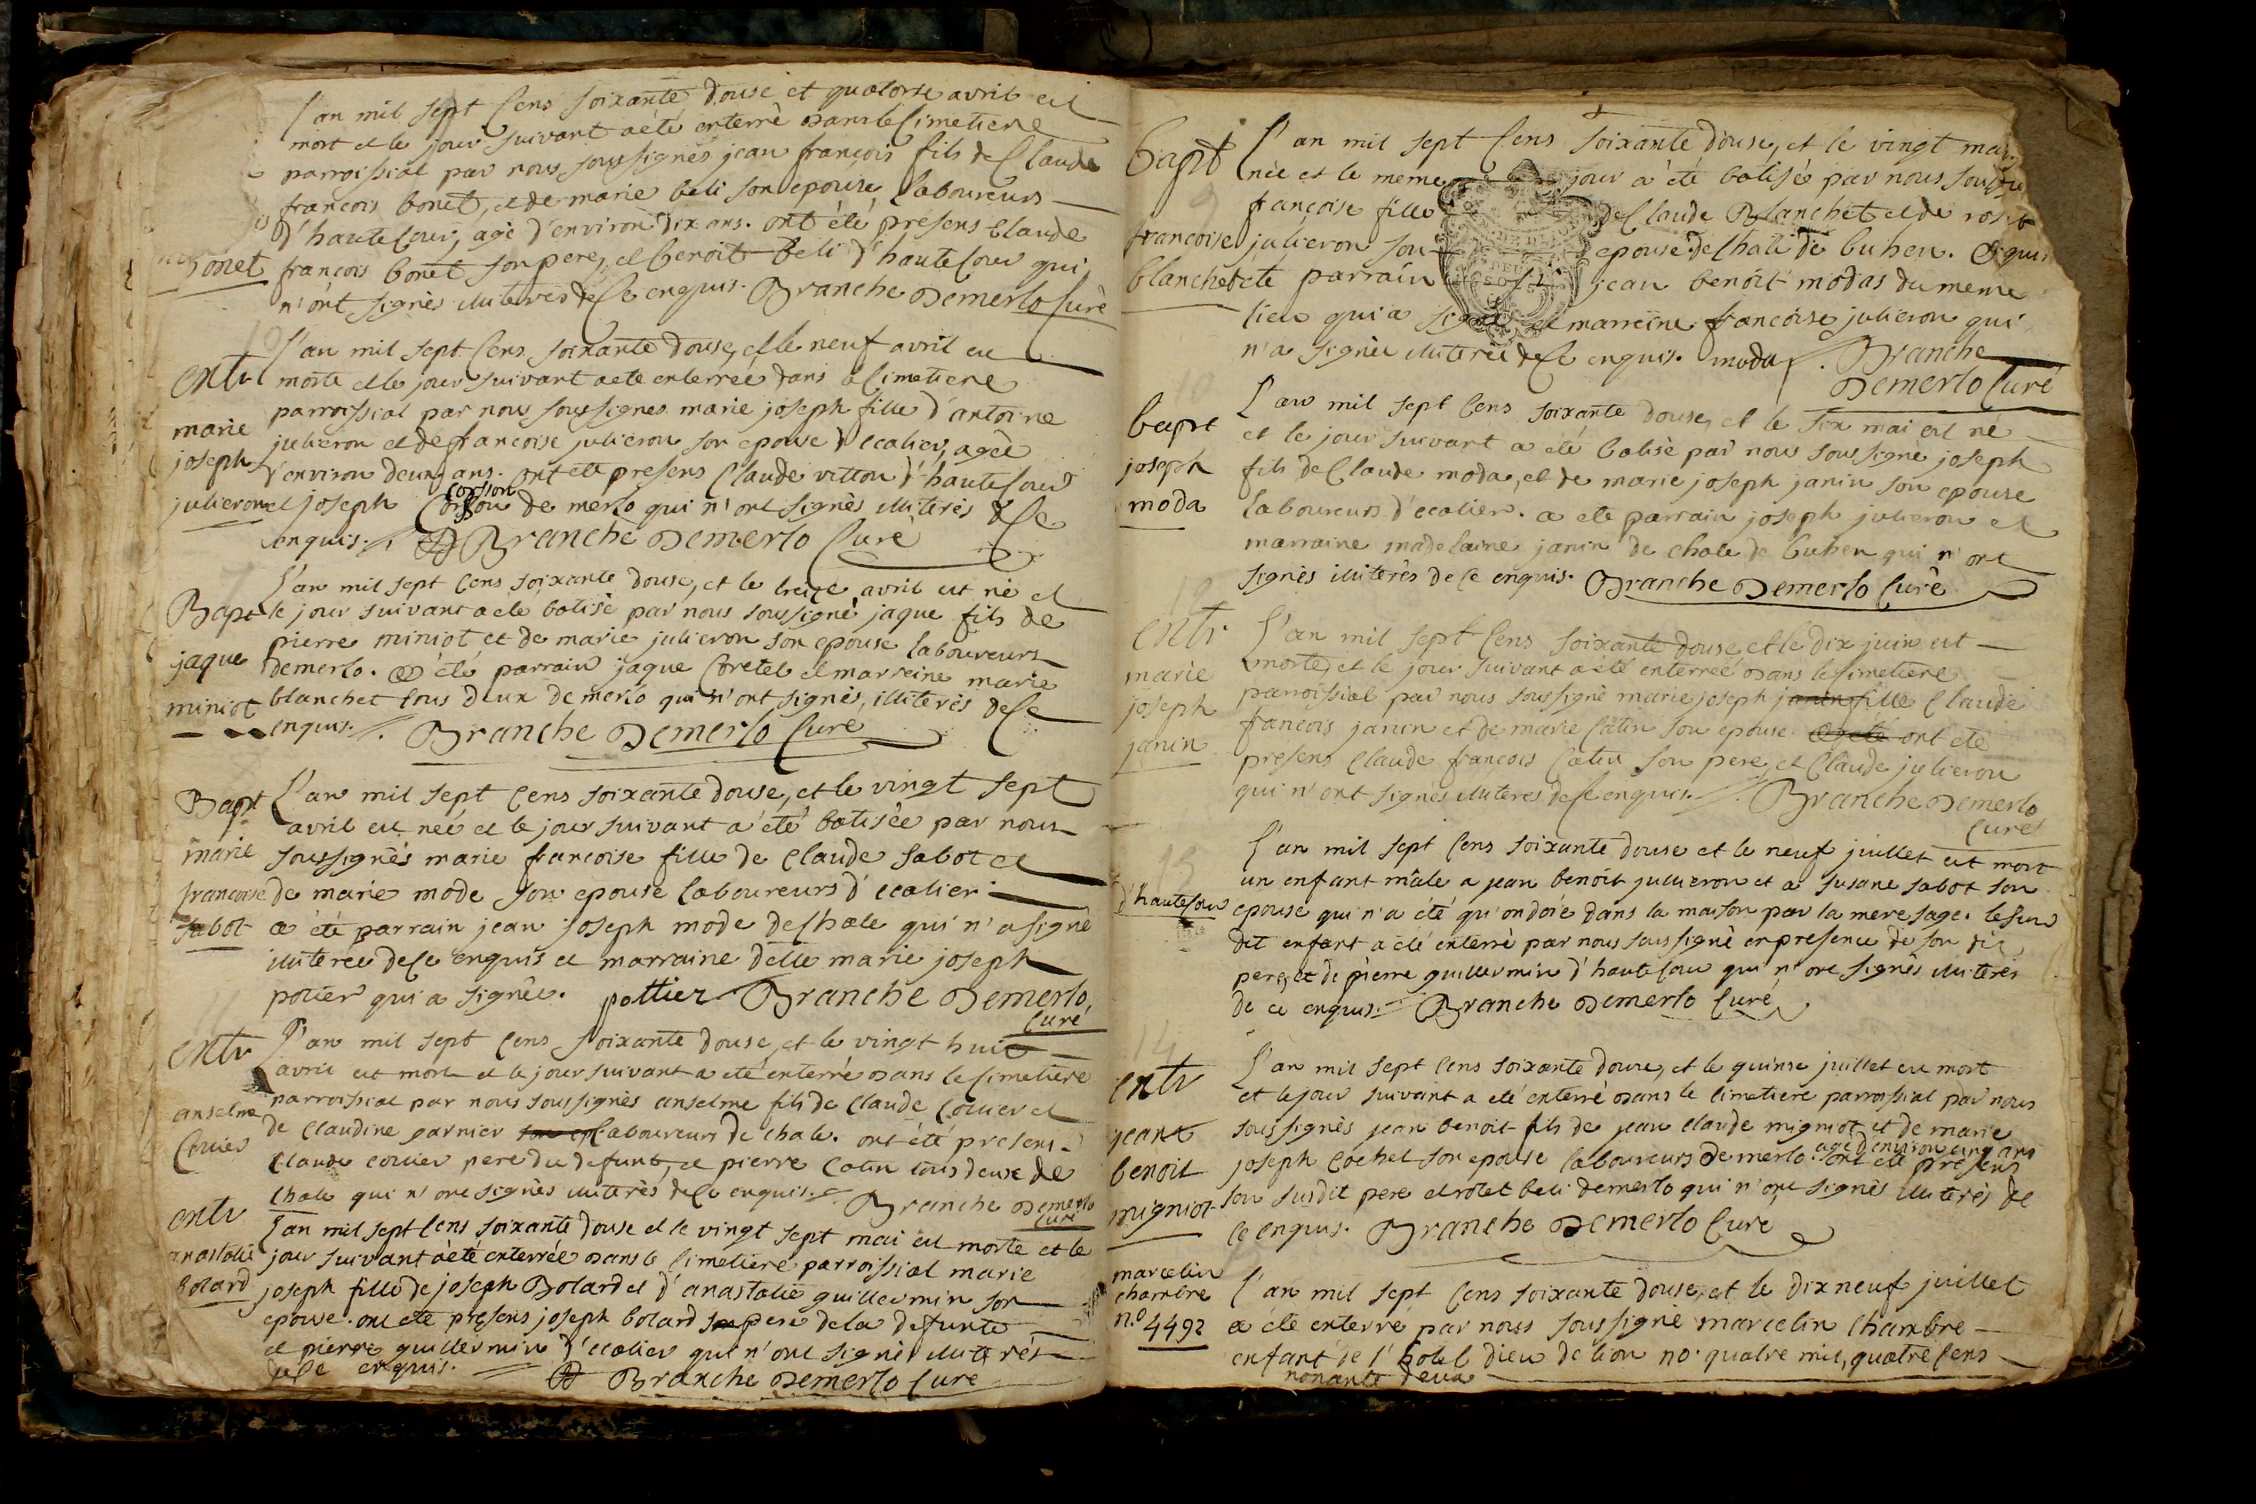 L'an mil sept cens soixante douse et quatorse avril est
mort et le jour suivant a été enterré dans le cimetiere
parroissial par nous soussignés jean françois fils de Claude
françois bonet, et de marie beli son epouse laboureurs
d'hautecour, agé d'environ dix ans. ont été présens Claude
bonet françois bonet son pere, et benoit beli d'hautecour qui
n'ont signés illiterés de ce enquis. Branche Demerlo Curé
L'an mil sept cens soixante douse, et le neuf avril est
entr morte et le jour suivant a eté enterrée dans le cimetiere
parroissial par nous soussignes marie joseph fille d'antoine
marie julieron et de françoise julieron son epouse d'ecalier, agée
joseph d'environ deux ans. ont été presens Claude vitton d'hautecour
julieron et joseph corsion de merlo qui n'ont signés illiterés de ce
enquis. Branche Demerlo Curé
L'an mil sept cens soixante douse, et le treise avril est né et
Bapt le jour suivant a eté batisé par nous soussigné, jaque fils de
pierre miniot et de marie julieron son epouse laboureurs
jaque demerlo. a été parrain jaque Coretel et marreine marie
miniot blanchet tous deux de merlo qui n'ont signés, illiterés de ce
enquis. Branche Demerlo Curé
Bapt L'an mil sept cens soixante douse, et le vingt sept
avril est neé et le jour suivant a été batisée par nous
marie soussignés marie francoise fille de Claude sabot et
francoise de marie mode son epouse laboureurs d'ecalier
sabot a été parrain jean joseph mode de chale qui n'a signé
illiteree de ce enquis et marraine delle marie joseph
potier qui a signée. pottier Branche Demerlo
Curé
entr L'an mil sept cens soixante douse, et le vingt huit
avril est mort et le jour suivant a eté enterré dans le cimetiere
anselme parroissial par nous soussignés anselme fils de Claude Cottier et
Cottier de Claudine garnier laboureurs de chale. ont été presens
Claude cottier pere du defunt, et pierre Catin tous deux de
chale qui n'ont signés illiterés de ce enquis. Branche Demerlo
Curé
entr L'an mil sept cens soixante douse et le vingt sept mai est morte et le
anastasie jour suivant a eté enterrée dans le cimetiere parroissial marie
bolard joseph fille de joseph Bolard et d'anastasie guillermin son
epouse. ont eté presens joseph bolard pere de la defunte
et pierre guillermin d'ecalier qui n'ont signés illiterés
de ce enquis. Branche Demerlo Curé
Bapt L'an mil sept cens soixante douse, et le vingt mai
née et le meme jour a été batisée par nous
françoise fille de Claude Blanchet et de rose
francoise julieron son epouse de chale de buhen.
blanchet eté parrain jean benoit modas du meme
lieu qui a signé et marreine francoise julieron qui
n'a signée illiterée de ce enquis. moda Branche
Demerlo Curé
L'an mil sept cens soixante douse, et le six mai est né
bapt et le jour suivant a été batisé par nous soussigné joseph
joseph fils de Claude moda, et de marie joseph janin son epouse
moda laboureurs d'ecalier. a eté parrain joseph julieron et
marraine madelaine janin de chale de buhen qui n'ont
signés illiterés de ce enquis. Branche Demerlo Curé
entr L'an mil sept cens soixante douse et le dix juin est
morte et le jour suivant a eté enterreé dans le cimetiere
marie parroissial par nous soussigné marie joseph janin fille Claude
joseph francois janin et de marie Catin son epouse. ont eté
janin presens Claude françois Catin son pere, et Claude julieron
qui n'ont signés illiteres de ce enquis. Branche Demerlo
Curé
L'an mil sept cens soixante douse et le neuf juillet est mort
un enfant mâle a jean benoit jullieron et a susane sabot son
d'hautecour epouse qui n'a été qu'ondoié dans la maison par la mere sage. le sus
dit enfant a été enterré par nous soussigné en presence de son dit
pere, et de pierre guillermin d'hautecour qui n'ont signés illiterés
de ce enquis. Branche Demerlo Curé
L'an mil sept cens soixante douse, et le quinse juillet est mort
entr et le jour suivant a eté enterré dans le cimetiere parroissial par nous
jean soussignés jean benoit fils de jean claude migniot et de marie
agé d'environ cinq ans
benoit joseph Cochet son epouse laboureurs de merlo. ont eté presens
migniot son susdit pere et rolet beli demerlo qui n'ont signés illiterés de
ce enquis. Branche Demerlo Curé
marcelin
chambre L'an mil sept cens soixante douse, et le dix neuf juillet
n.o 4492 a été enterré par nous soussigné marcelin Chambre
enfant de l'hotel dieu de lion no. quatre mil, quatre cens
nonante deux